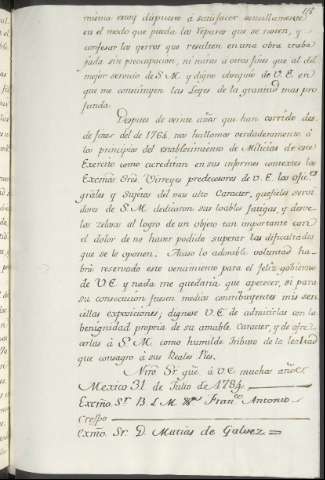 118
misma estoy dispuesto á satisfacer sencillamente
en el modo que pueda los reparos que se noten, y
confesar los yerros que resulten en una obra traba
jada sin preocupacion, ni miras a otros fines que al del
mejor servicio de S. M. y digno obsequio de V. E. en
que me constituyen las Leyes de la gratitud mas pro
funda.
Despues de veinte años que han corrido des
de fines del de 1764 nos hallamos verdaderamente á
los principios del establecimiento de Milicias de este
Exercito como acreditan en sus informes contextes los
Excmos Sres Virreyes predecesores de V. E. los ofic.s
grales y Sugetos del mas alto Caracter, que fieles servi
dores de S. M. dedicaron sus loables fatigas, y desve
los zelosos al logro de un objeto tan importante con
el dolor de no haver podido superar las dificultades
que se le oponen. Acaso la adorable voluntad ha
brá reservado este vencimiento para el feliz gobierno
de V. E. y nada me quedaria que apetecer, si para
su consecucion fuesen medios contribuyentes mis sen
cillas exposiciones; dignese V. E. de admitirlas con la
benignidad propria de su amable Caracter, y de ofre
cerlas á S. M. como humilde tributo de la lealtad
que consagro á sus Reales Pies.
Nrô Sr. guê. á V. E. muchos años.
Mexico 31 de Julio de 1784.
Excmo. S.r B. L. M. Fran.co Antonio
Crespo
Exmo. Sr. D. Matias de Galvez